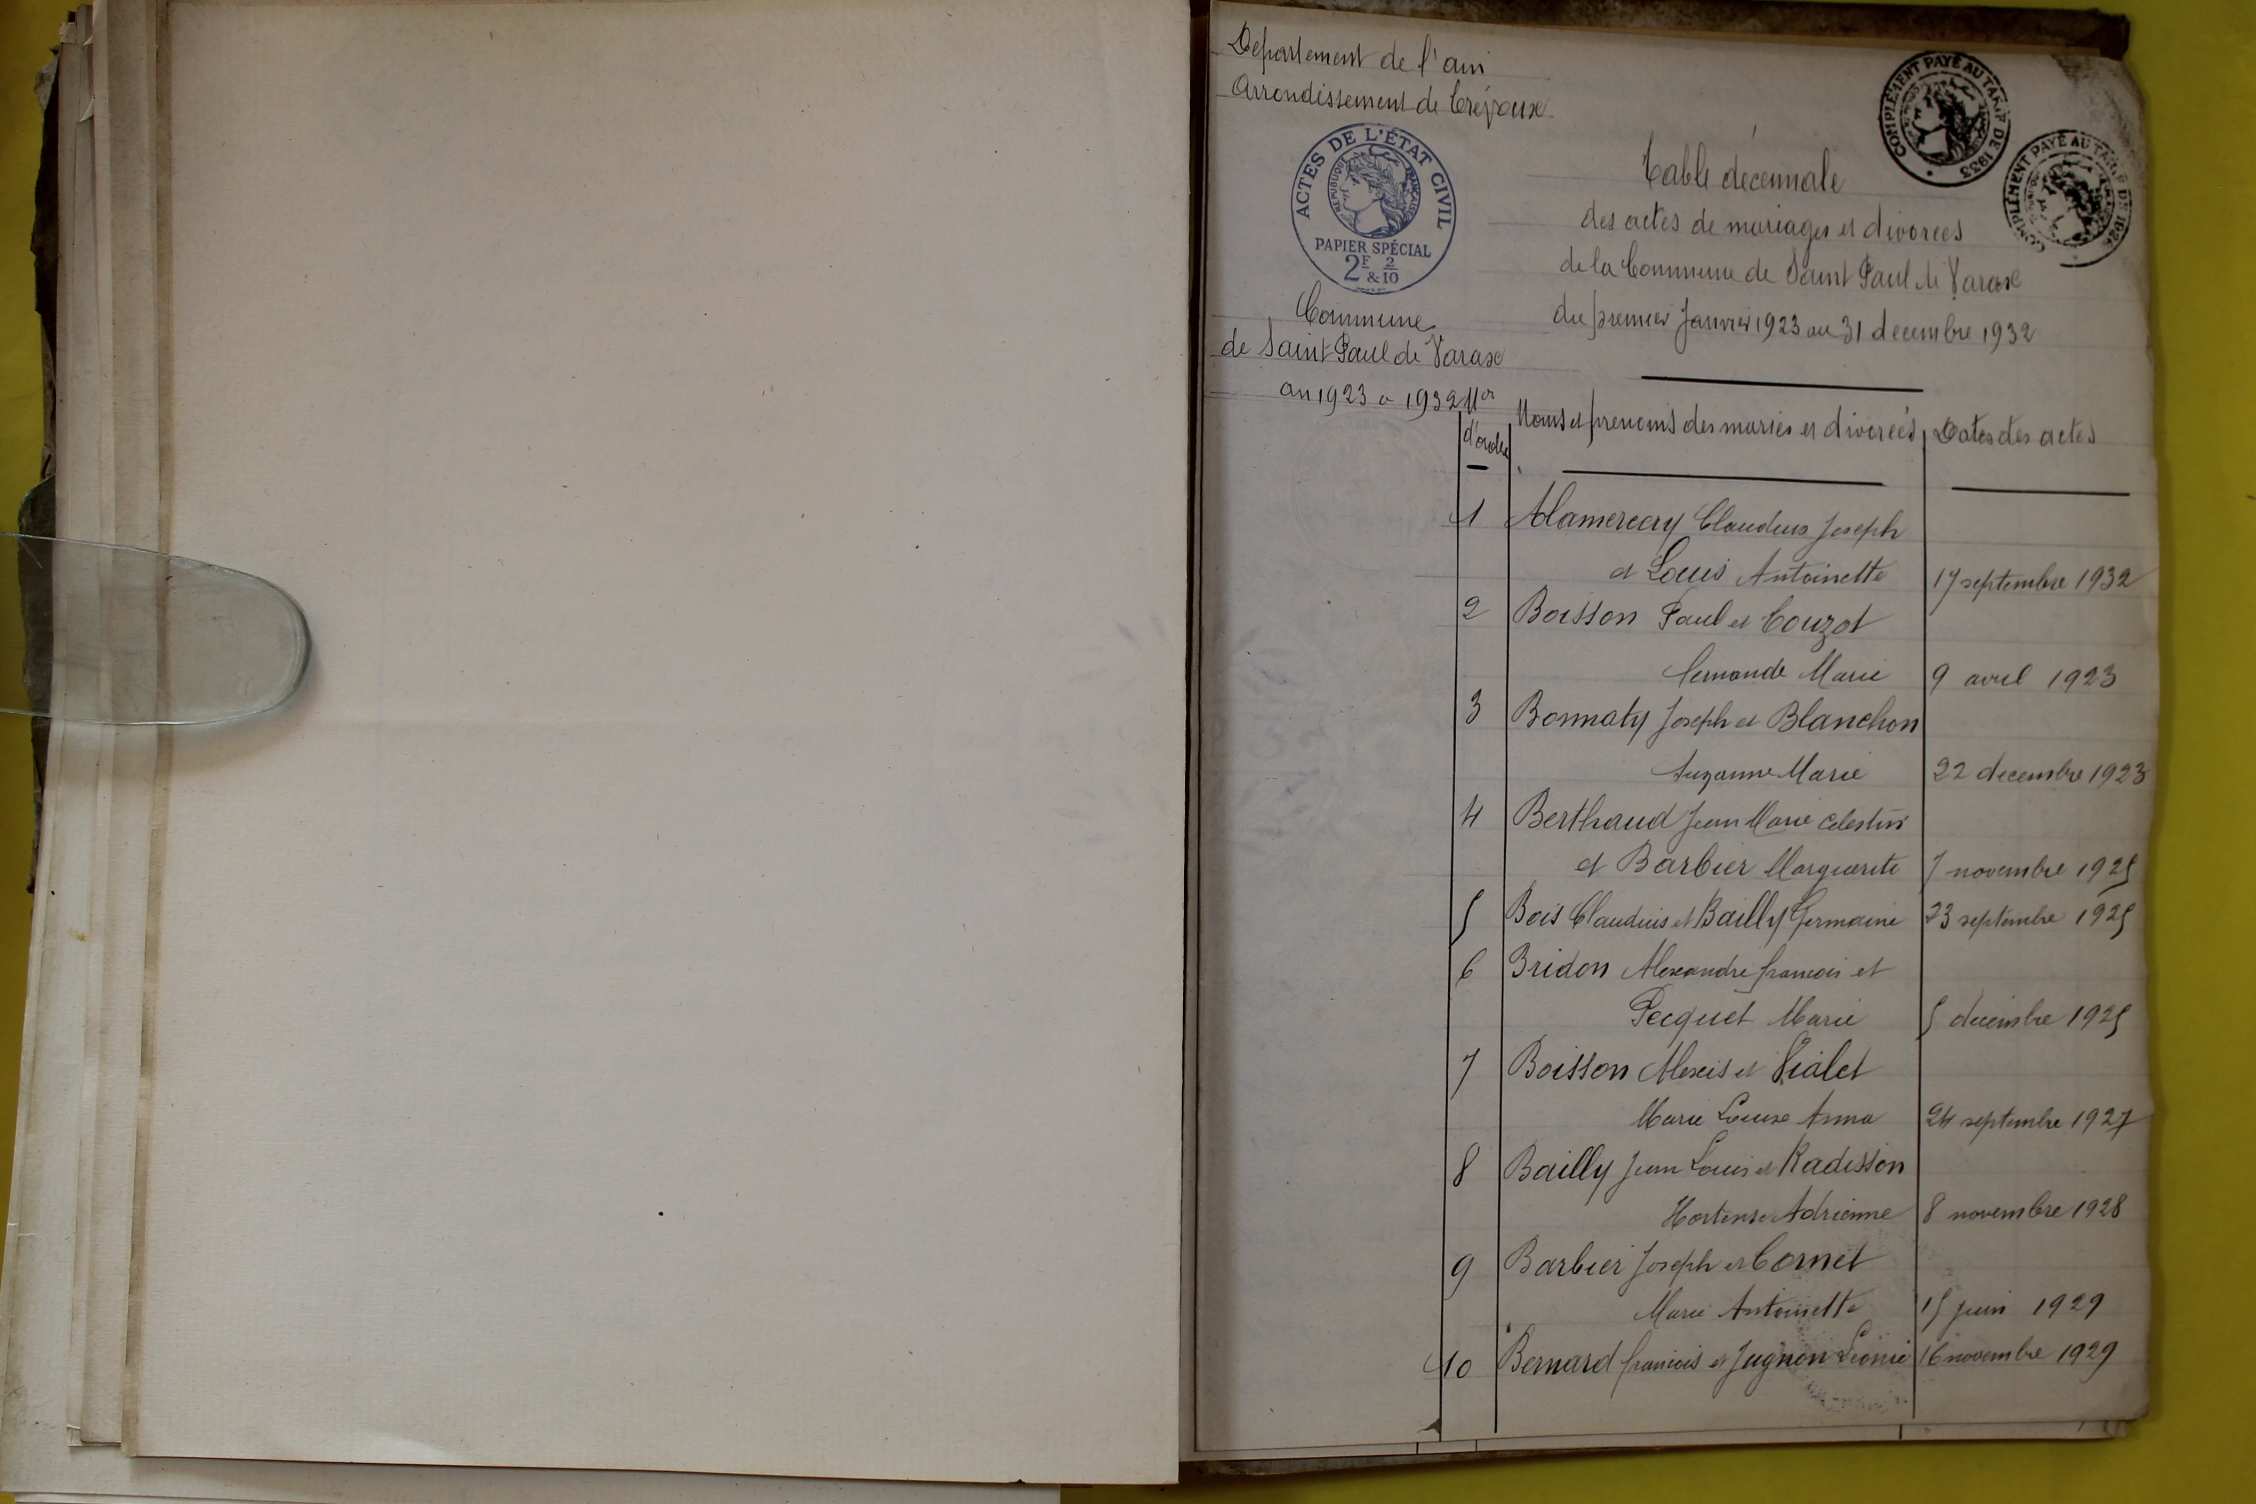 Departement de l'ain
Arrondissement de Trévoux
COMPLÉMENT PAYÉ AU TARIF DE 1933
COMPLÉMENT PAYÉ AU TARIF DE
ACTES DE L'ÉTAT CIVIL
RÉPUBLIQUE FRANÇAISE
PAPIER SPÉCIAL
2F & 2/10
Table décennale
des actes de mariages et divorces
de la Commune de Saint Paul de Varax
du premier Janvier 1923 au 31 decembre 1932
Commune
de Saint Paul de Varax
an 1923 a 1932
Nos d'ordre
Noms et prenoms des mariés et divorcés
Dates des actes
1 Alamercery Claudius Joseph
et Louis Antoinette 17 septembre 1932
2 Boisson Paul et Couzot
Fernande Marie 9 avril 1923
3 Bonnaty Joseph et Blanchon
Suzanne Marie 22 decembre 1923
4 Berthaud Jean Marie Celestin
et Barbier Marguerite 7 novembre 1925
5 Bois Claudius et Bailly Germaine 23 septembre 1925
6 Bridon Alexandre francois et
Pecquet Marie 5 decembre 1925
7 Boisson Alexis et Vialet
Marie Louise Anna 24 septembre 1927
8 Bailly Jean Louis et Radisson
Hortense Adrienne 8 novembre 1928
9 Barbier Joseph et Cornet
Marie Antoinette 15 juin 1929
10 Bernard francois et Jugnon Leonie 16 novembre 1929